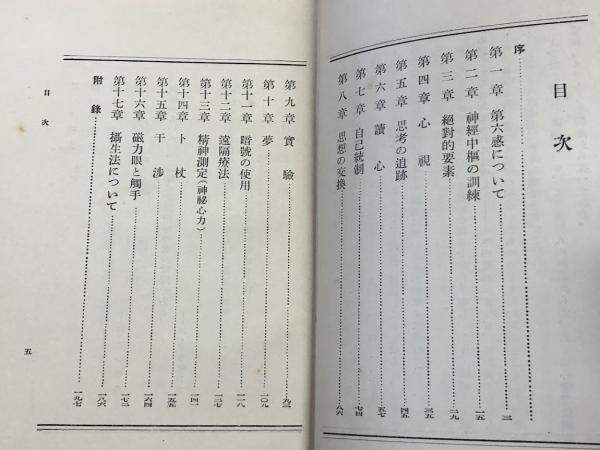 目次
序……………………………
第一章 第六感について……………………三
第二章 神經中樞の訓練……………………一五
第三章 絕對的要素……………………二九
第四章 心視……………………三五
第五章 思考の追跡……………………四五
第六章 讀心……………………五七
第七章 自己統制……………………七四
第八章 思想の交換……………………八六
第九章 實驗……………………九三
第十章 夢……………………一〇九
第十一章 暗號の使用……………………一一八
第十二章 遠隔療法……………………一二七
第十三章 精神測定(神祕心力)……………………一四一
第十四章 卜杖……………………一五五
第十五章 干涉……………………一六四
第十六章 磁力眼と觸手……………………一七二
第十七章 攝生法について……………………一八六
附錄……………………一九七
目次
五